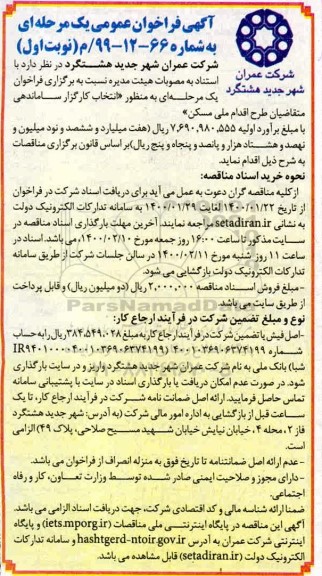 آگهی فراخوان عمومی یک مرحله ای
به شماره ۶۶-۱۲-۹۹/م (نوبت اول)
شرکت عمران
شهر جدید هشتگرد
شرکت عمران شهر جدید هشتگرد در نظر دارد با
استناد به مصوبات هیئت مدیره نسبت به برگزاری فراخوان
یک مرحله‌ای به منظور «انتخاب کارگزار ساماندهی
متقاضیان طرح اقدام ملی مسکن»
با مبلغ برآورد اولیه ۷,۶۹۰,۹۸۰,۵۵۵ ریال (هفت میلیارد و ششصد و نود میلیون و
نهصد و هشتاد هزار و پانصد و پنجاه و پنج ریال) بر اساس قانون برگزاری مناقصات
به شرح ذیل اقدام نماید.
نحوه خرید اسناد مناقصه:
از کلیه مناقصه گران دعوت به عمل می آید برای دریافت اسناد شرکت در فراخوان
از تاریخ ۱۴۰۰/۰۱/۲۲ لغایت ۱۴۰۰/۰۱/۲۹ به سامانه تدارکات الکترونیک دولت
به نشانی setadiran.ir مراجعه نمایند. آخرین مهلت بارگذاری اسناد مناقصه در
سایت مذکور تا ساعت ۱۶:۰۰ روز جمعه مورخ ۱۴۰۰/۰۲/۱۰ می باشد. اسناد در
ساعت ۱۱ روز شنبه مورخ ۱۴۰۰/۰۲/۱۱ در سالن جلسات شرکت از طریق سامانه
تدارکات الکترونیک دولت بازگشایی می شود.
-مبلغ فروش اسناد مناقصه ۲,۰۰۰,۰۰۰ ریال (دو میلیون ریال) و قابل پرداخت
از طریق سایت می باشد.
نوع و مبلغ تضمین شرکت در فرآیند ارجاع کار:
-اصل فیش یا تضمین شرکت در فرآیند ارجاع کار به مبلغ ۳۸۴,۵۴۹,۰۲۸ ریال را به حساب
شماره
شبا) بانک ملی به نام شرکت عمران شهر جدید هشتگرد واریز و در سایت بارگذاری
شود. در صورت عدم امکان دریافت یا بارگذاری اسناد در سایت با پشتیبانی سامانه
تماس حاصل فرمایید. ارائه اصل ضمانت نامه شرکت در فرآیند ارجاع کار، تا یک
ساعت قبل از بازگشایی به اداره امور مالی شرکت (به آدرس: شهر جدید هشتگرد
فاز ۲، محله ۴، خیابان نیایش خیابان شهید مسیح صلاحی، پلاک ۴۹) الزامی
است.
-عدم ارائه اصل ضمانتنامه تا تاریخ فوق به منزله انصراف از فراخوان می باشد.
-دارای مجوز و صلاحیت ایمنی صادر شده توسط وزارت تعاون، کار و رفاه
اجتماعی.
ضمنا ارائه شناسه مالی و کد اقتصادی شرکت، جهت دریافت اسناد الزامی می باشد.
آگهی این مناقصه در پایگاه اینترنتی ملی مناقصات (iets.mporg.ir) و پایگاه
اینترنتی شرکت عمران به آدرس hashtgerd-ntoir.gov.ir و سامانه تدارکات
الکترونیک دولت (setadiran.ir) قابل مشاهده می باشد.
ParsNamadData